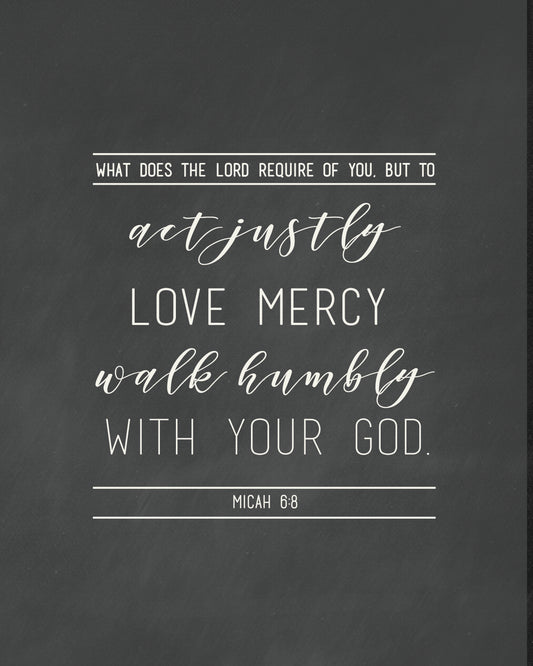 WHAT DOES THE LORD REQUIRE OF YOU, BUT TO
act justly
LOVE MERCY
walk humbly
WITH YOUR GOD.
MICAH 6:8